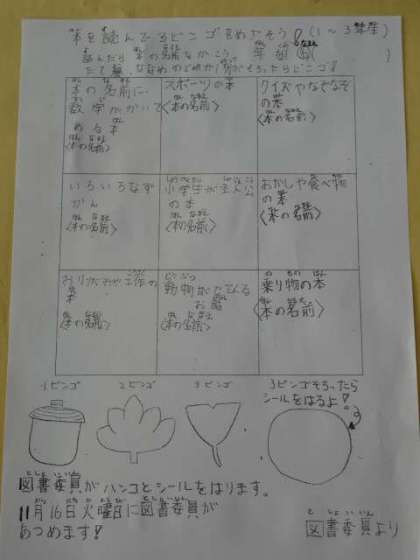 本を読んで3ビンゴをめざそう!(1〜3年生)
読んだら本の名前をかこう。 年 組 (名前 )
たて、横、ななめ、のどれか1列がそろったらビンゴ!
本の名前に、
数字がかいて
ある本
〈本の名前〉
スポーツの本
〈本の名前〉
クイズやなぞなぞ
の本
〈本の名前〉
いろいろなず
かん
〈本の名前〉
小学生が主人公
の本
〈本の名前〉
おかしや食べ物
の本
〈本の名前〉
おりがみや工作の
本
〈本の名前〉
動物がでてくる
お話
〈本の名前〉
乗り物の本
〈本の名前〉
1ビンゴ 2ビンゴ 3ビンゴ 3ビンゴそろったら
シールをはるよ!
図書委員がハンコとシールをはります。
11月16日火曜日に図書委員が
あつめます!
図書委員より